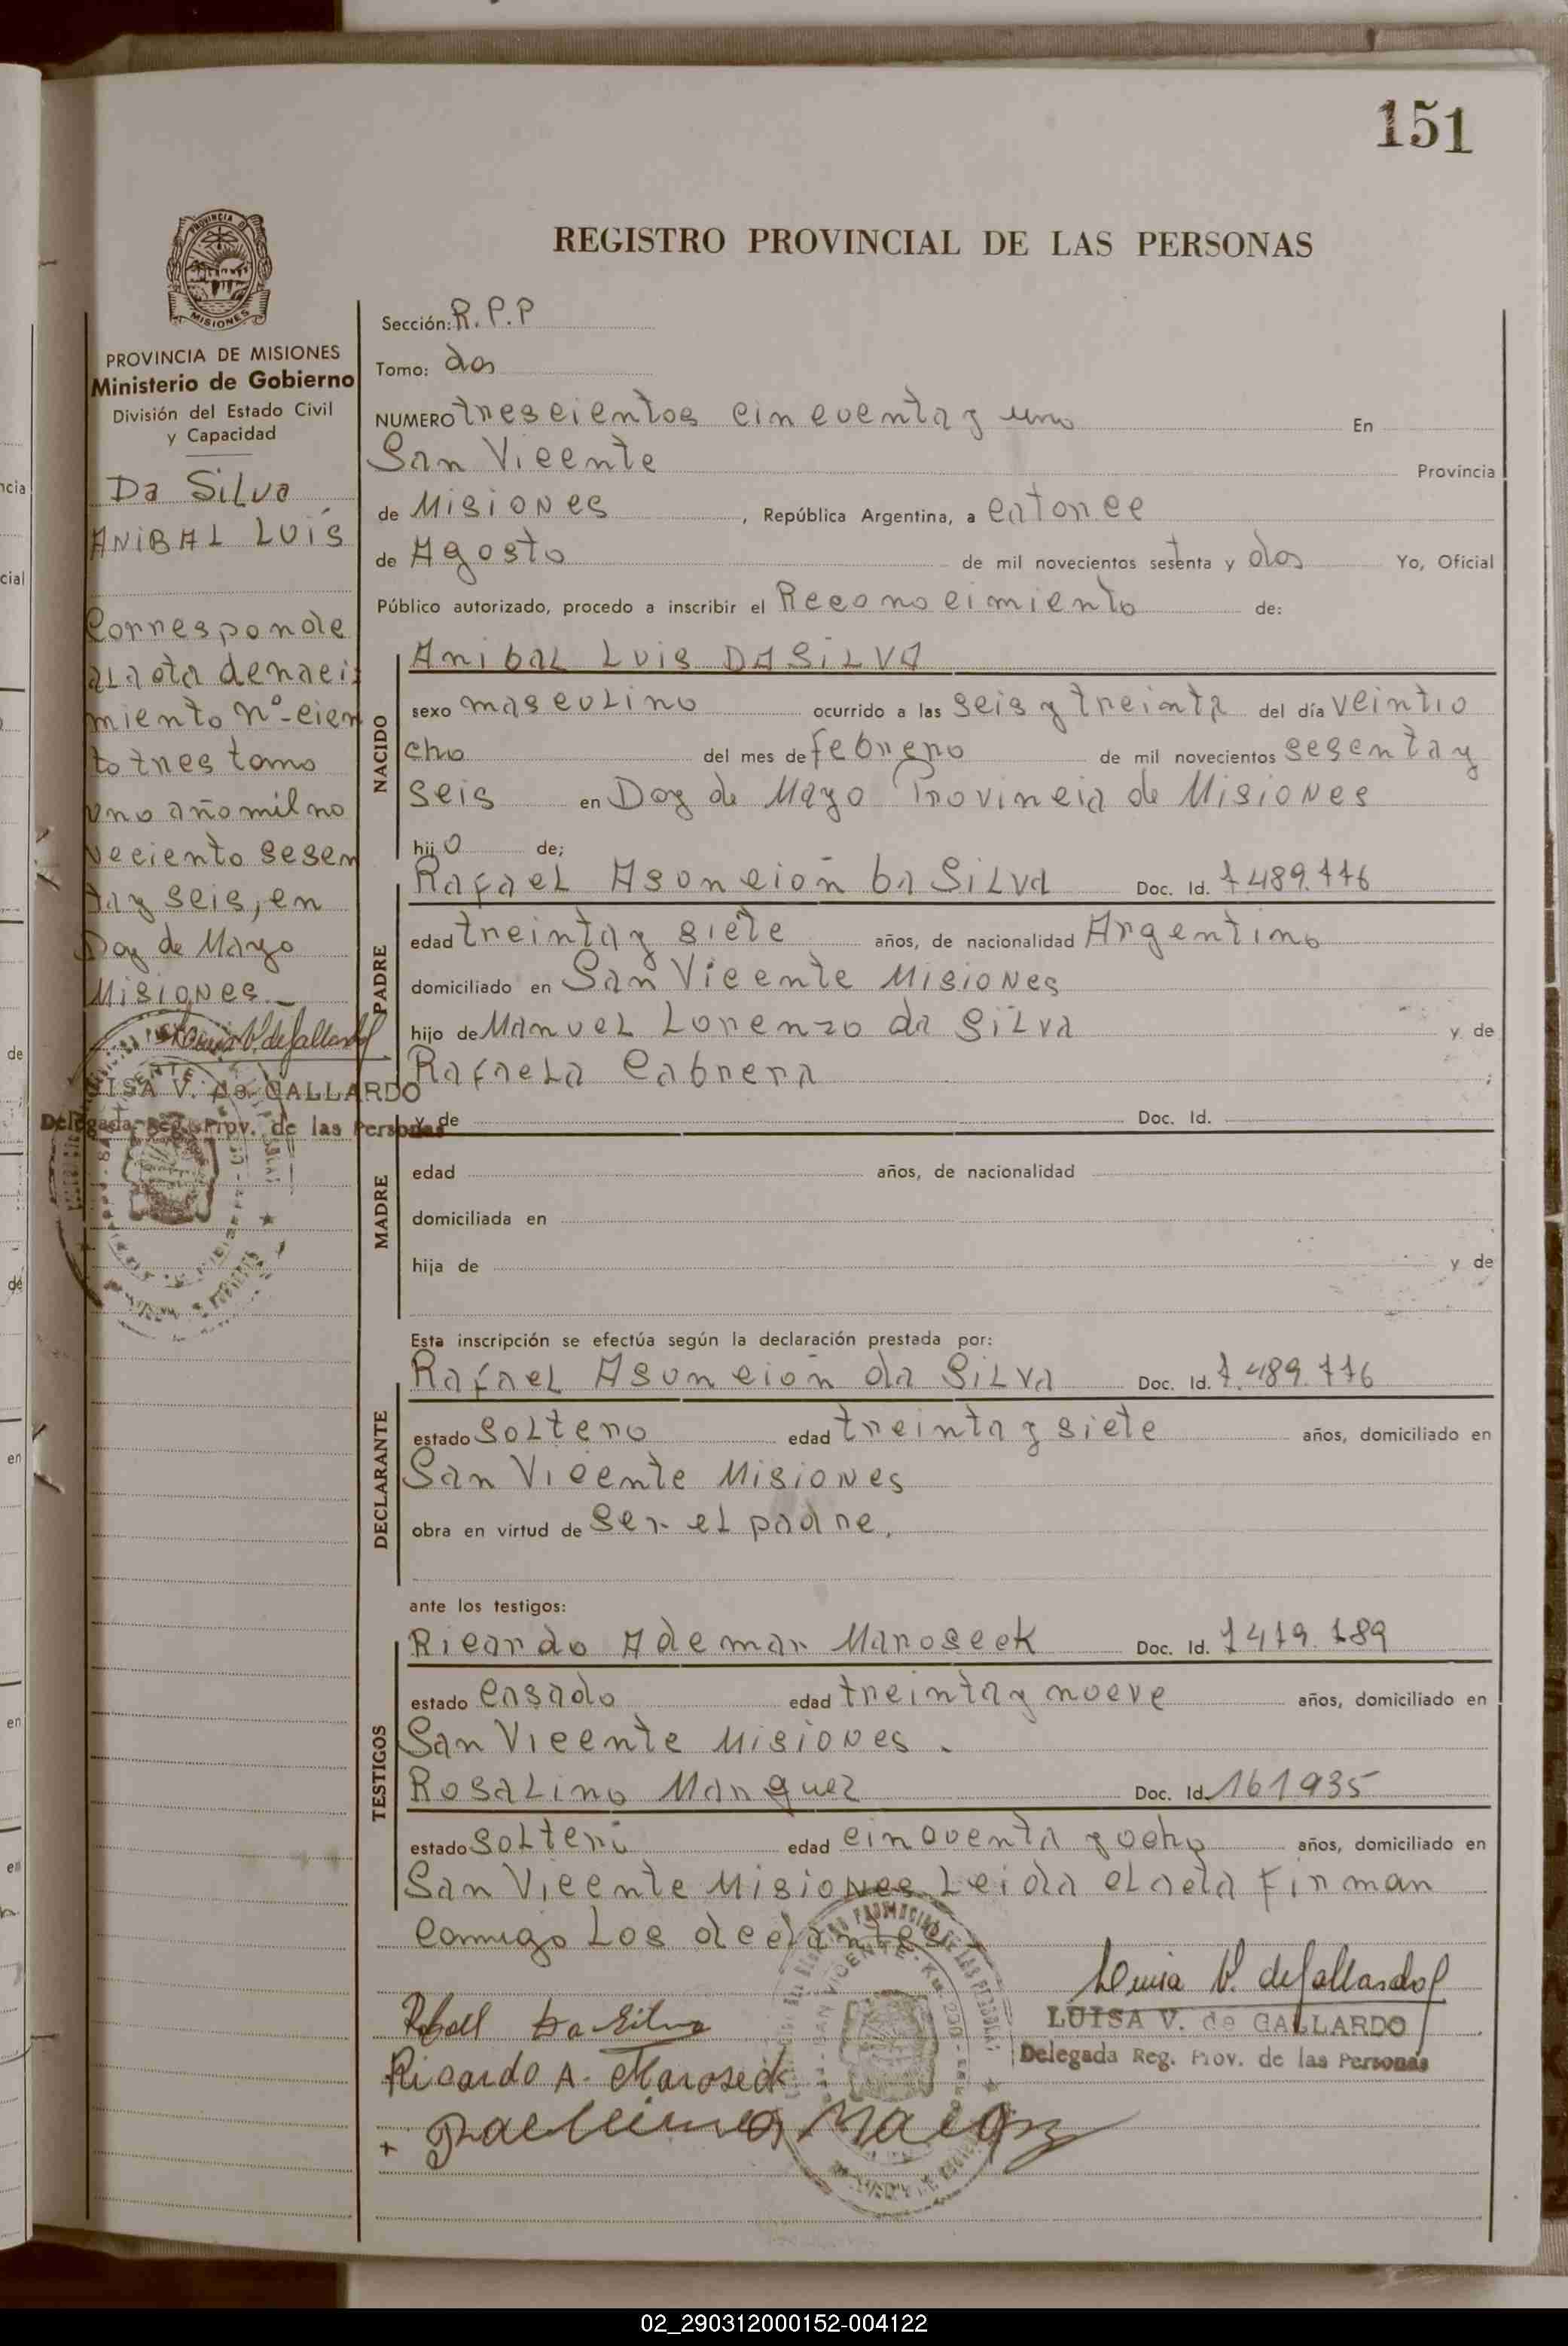 151
PROVINCIA DE
MISIONES
PROVINCIA DE MISIONES
Ministerio de Gobierno
División del Estado Civil
y Capacidad
Da Silva
ANIBAL LUIS
Corresponde
a La ata de naci
miento nº-cien
to tres tomo
uno año mil no
veciento sesen
ta y seis, en
Doz de Mayo
Misiones.-
Luisa V. de Gallardo
LUISA V. de GALLARDO
Delegada Reg. Prov. de las Personas
REGISTRO PROVINCIAL DE LAS PERSONAS
Sección: R.P.P
Tomo: dos
NUMERO trescientos cincuenta y uno En
San Vicente Provincia
de Misiones, República Argentina, a catorce
de Agosto de mil novecientos setenta y dos Yo, Oficial
Público autorizado, procedo a inscribir el Reconocimiento de:
NACIDO
Anibal Luis DA SILVA
sexo masculino ocurrido a las seis y treinta del día veintio
cho del mes de febrero de mil novecientos sesenta y
seis en Doz de Mayo Provincia de Misiones
hijo de;
PADRE
Rafael Asunción da Silva Doc. Id. 7489.776
edad treinta y siete años, de nacionalidad Argentino
domiciliado en San Vicente Misiones
hijo de Manuel Lorenzo da Silva y de
Rafaela Cabrera ;
MADRE
y de Doc. Id.
edad años, de nacionalidad
domiciliada en
hija de y de
Esta inscripción se efectúa según la declaración prestada por:
DECLARANTE
Rafael Asunción da Silva Doc. Id. 7.489.776
estado soltero edad treinta y siete años, domiciliado en
San Vicente Misiones
obra en virtud de ser el padre.
ante los testigos:
TESTIGOS
Ricardo Ademar Maroseek Doc. Id.
estado casado edad treinta y nueve años, domiciliado en
San Vicente Misiones.
Rosalino Marquez Doc. Id. 161935
estado edad cincuenta y ocho años, domiciliado en
San Vicente Misiones Leida el acta Firman
conmigo Los
Rafael Da Silva
Ricardo A. Maroseek
Luisa V. de Gallardo
LUISA V. de GALLARDO
Delegada Reg. Prov. de las Personas
02_290312000152-004122